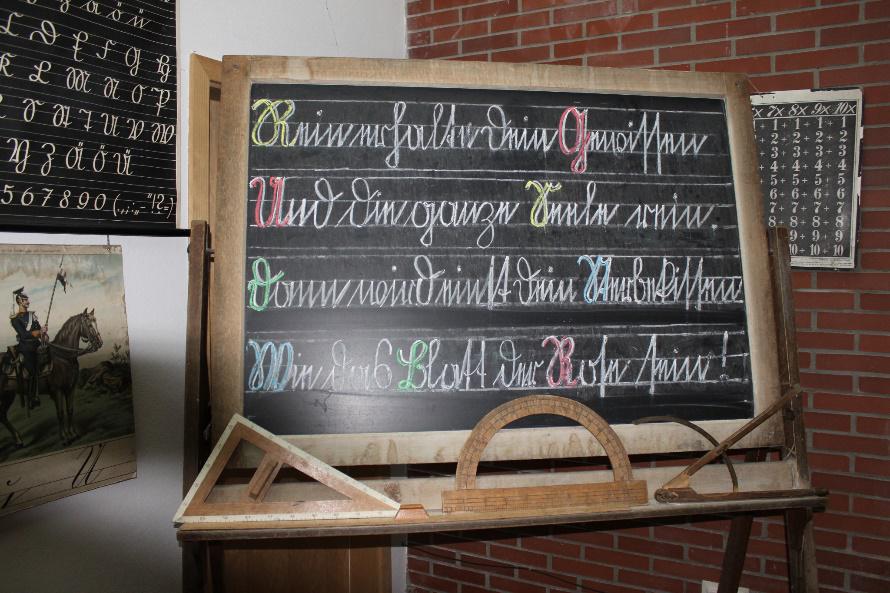 ä ö ü
C D E F G H
K L M N O P
Y Z Ä Ö Ü
5 6 7 8 9 0 (.,:;-„"!?=)
Rein erhalte dein Gewissen
Und die ganze Seele rein.
Dann wird einst dein Sterbekissen
Wie das Blatt der Rose sein!
7x 8x 9x 10x
1 1 1 1
2 2 2 2
3 3 3 3
4 4 4 4
5 5 5 5
6 6 6 6
7 7 7 7
8 8 8 8
9 9 9
10 10 10